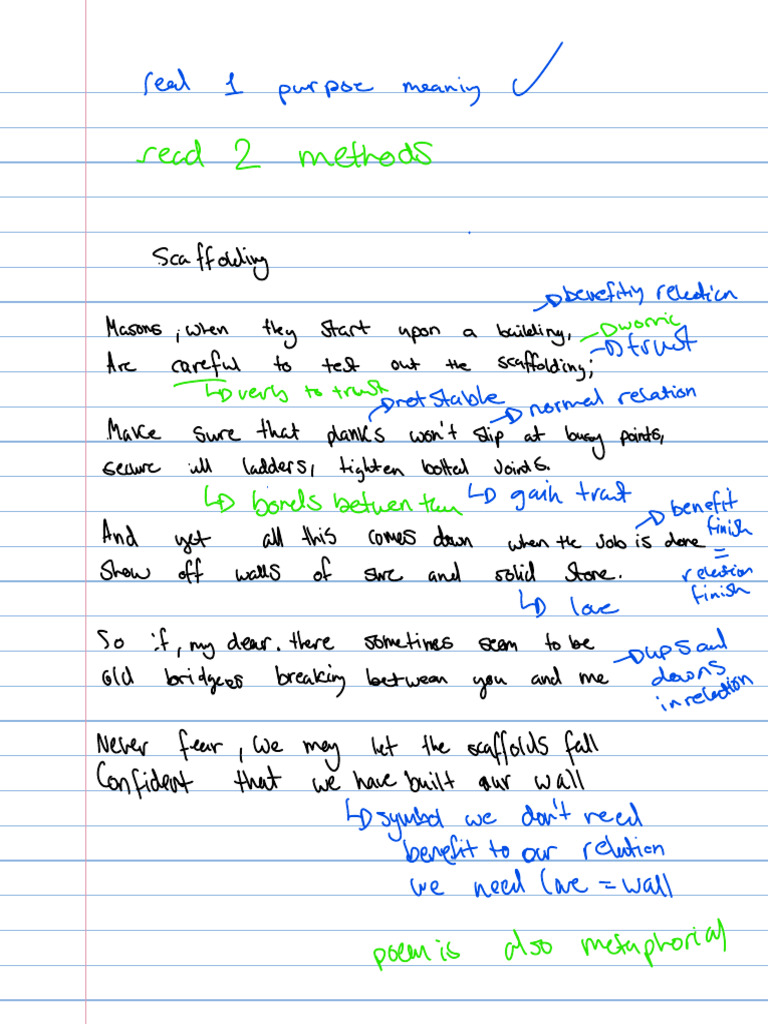 read 1 purpose meaning ✓
read 2 methods
Scaffolding
→ benefity relection
Masons, when they start upon a building,
→ worric
Are careful to test out the scaffolding;
→ trust
↳ verls to trust
→ not stable
→ normal relation
Make sure that planks won't slip at busy points,
secure all ladders, tighten bolted joints.
↳ bonds between them
↳ gain trust
→ benefit finish
=
relection finish
And yet all this comes down when the job is done
Show off walls of sure and solid stone.
↳ love
So if, my dear, there sometimes seem to be
Old bridges breaking between you and me
→ ups and
downs
in relection
Never fear, we may let the scaffolds fall
Confident that we have built our wall
↳ symbol we don't need
benefit to our relection
we need love = wall
poem is also metaphorial